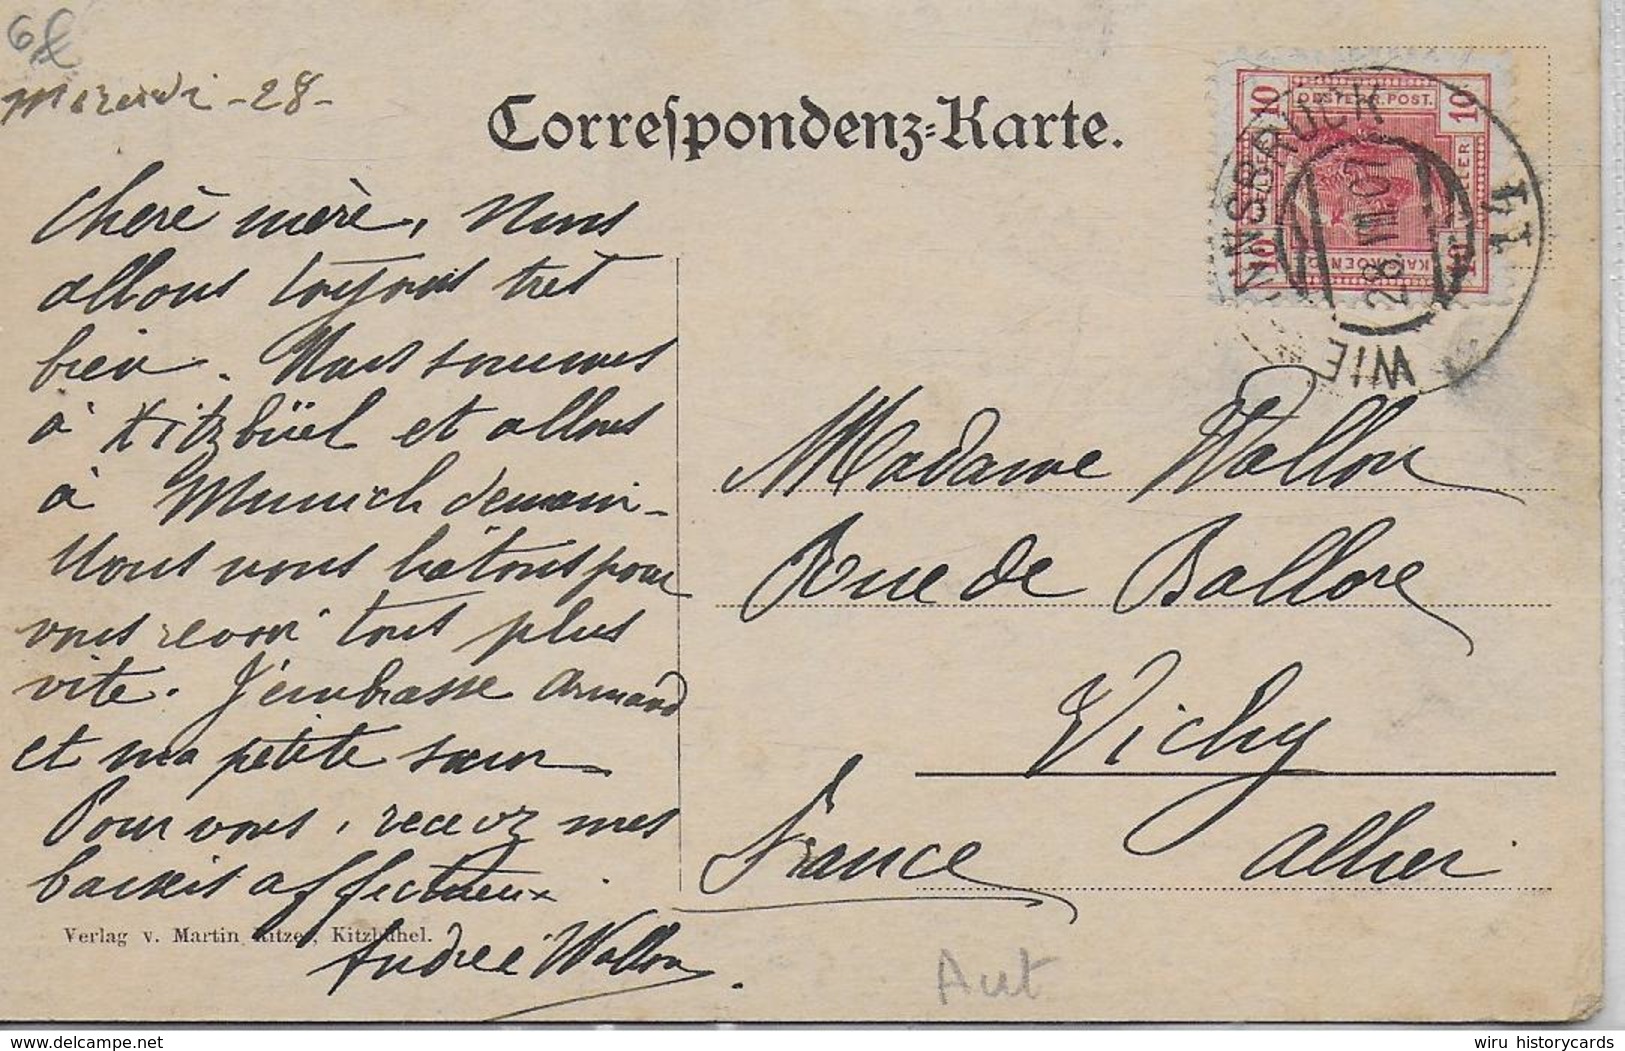 6£
Mercredi - 28 -
Correspondenz-Karte.
OESTERR. POST.
10
10
10
10
INNSBRUCK
28. VIII. 07
WIE
chere mère, Nous
allons toujours très
bien. Nous sommes
à Kitzbüel et allons
à Munich demain -
Nous nous hâtons pour
vous revoir tous plus
vite. J'embrasse Armand
et ma petite sœur -
Pour vous, recevez mes
baisers affectueux.
Andrée Wallon.
Madame Wallon
Rue de Ballore
Vichy
France Allier
Verlag v. Martin Ritzer, Kitzbühel.
Aut
www.delcampe.net
wiru_historycards